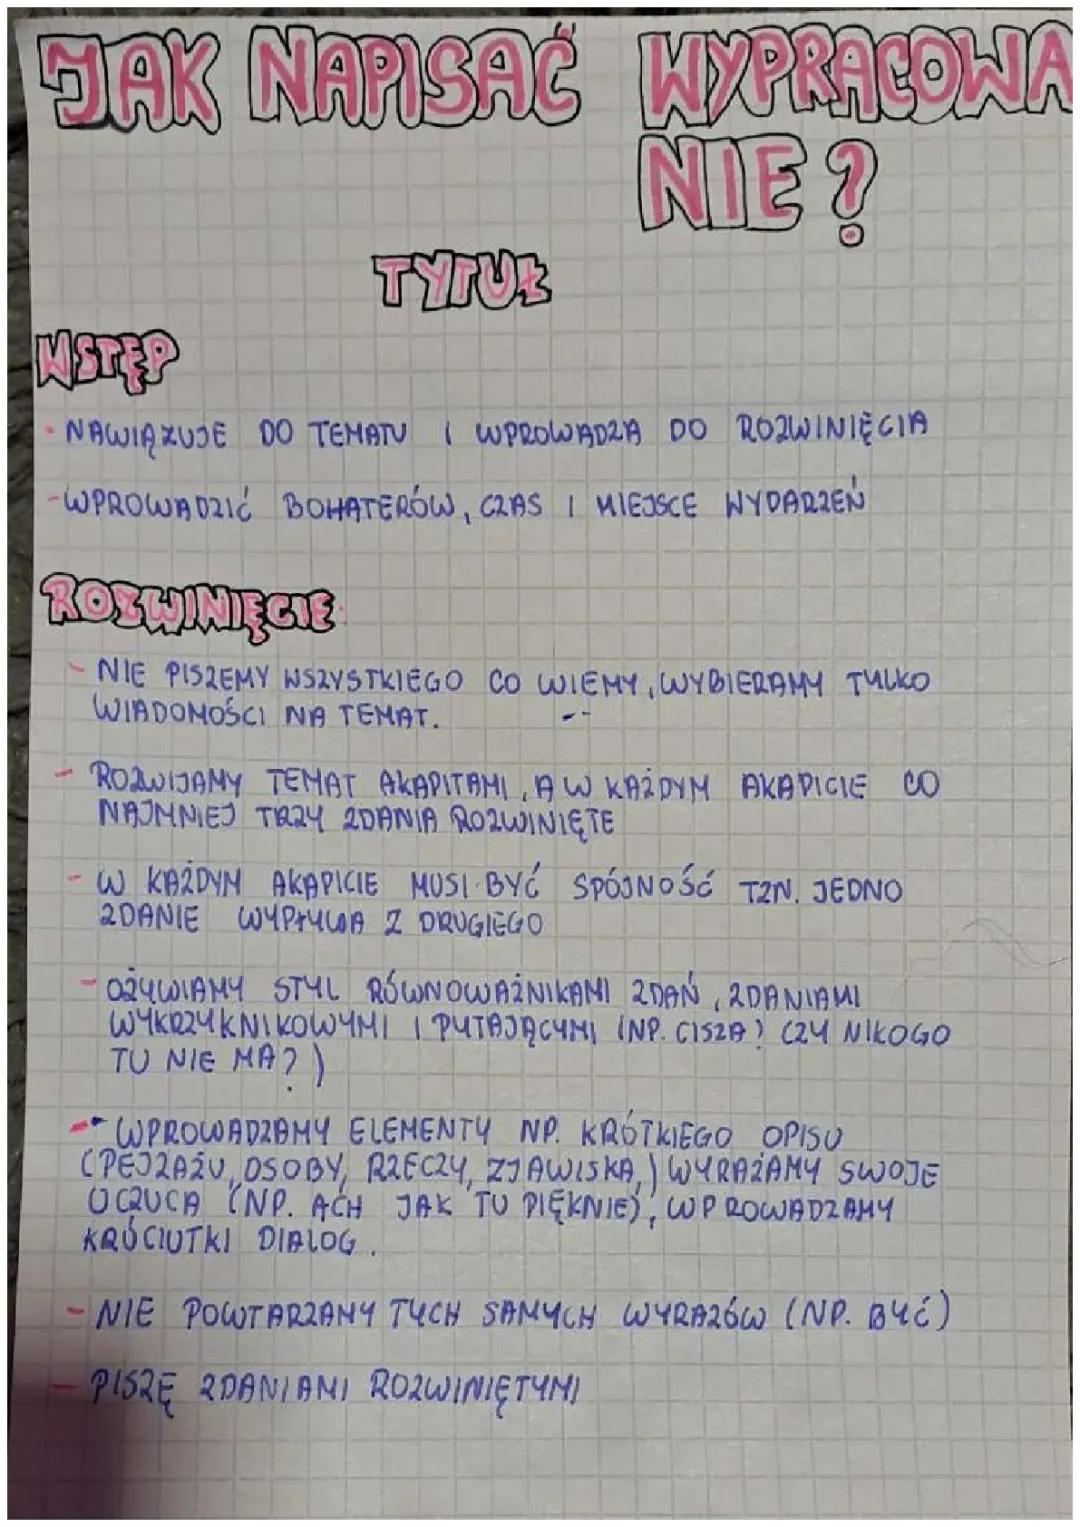 JAK NAPISAĆ WYPRACOWA
NIE?
TYTUŁ
WSTĘP
- NAWIĄZUJE DO TEMATU I WPROWADZA DO ROZWINIĘCIA
- WPROWADZIĆ BOHATERÓW, CZAS I MIEJSCE WYDARZEŃ
ROZWINIĘCIE
- NIE PISZEMY WSZYSTKIEGO CO WIEMY, WYBIERAMY TYLKO
WIADOMOŚCI NA TEMAT.
- ROZWIJAMY TEMAT AKAPITAMI, A W KAŻDYM AKAPICIE CO
NAJMNIEJ TRZY ZDANIA ROZWINIĘTE
- W KAŻDYM AKAPICIE MUSI BYĆ SPÓJNOŚĆ TZN. JEDNO
ZDANIE WYPŁYWA Z DRUGIEGO
- OŻYWIAMY STYL RÓWNOWAŻNIKAMI ZDAŃ, ZDANIAMI
WYKRZYKNIKOWYMI I PYTAJĄCYMI (NP. CISZA! CZY NIKOGO
TU NIE MA?)
- WPROWADZAMY ELEMENTY NP. KRÓTKIEGO OPISU
(PEJZAŻU, OSOBY, RZECZY, ZJAWISKA,) WYRAŻAMY SWOJE
UCZUCA (NP. ACH JAK TU PIĘKNIE), WPROWADZAMY
KRÓCIUTKI DIALOG.
- NIE POWTARZAMY TYCH SAMYCH WYRAZÓW (NP. BYĆ)
- PISZĘ ZDANIAMI ROZWINIĘTYMI